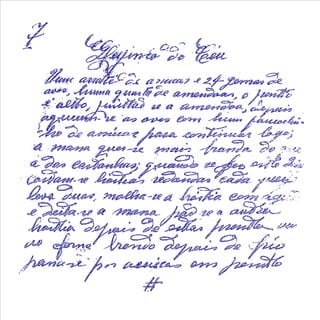 7
do Céu
Num arratel de assucar e 24 gemas de
ovos, huma quarta de amendoas, o ponto
é alto, juntão se a amendoa, depois
os ovos com hum
de assucar para continuar logo,
a massa quer-se mais branda do que
a das castanhas;
cortam-se hostias redondas cada
leva duas, molha-se a hostia com agoa
e deita-se a massa põe se a outra
hostia depois de estas promptas vão
ao forno brando depois de frio
passa-se por assucar em ponto
#